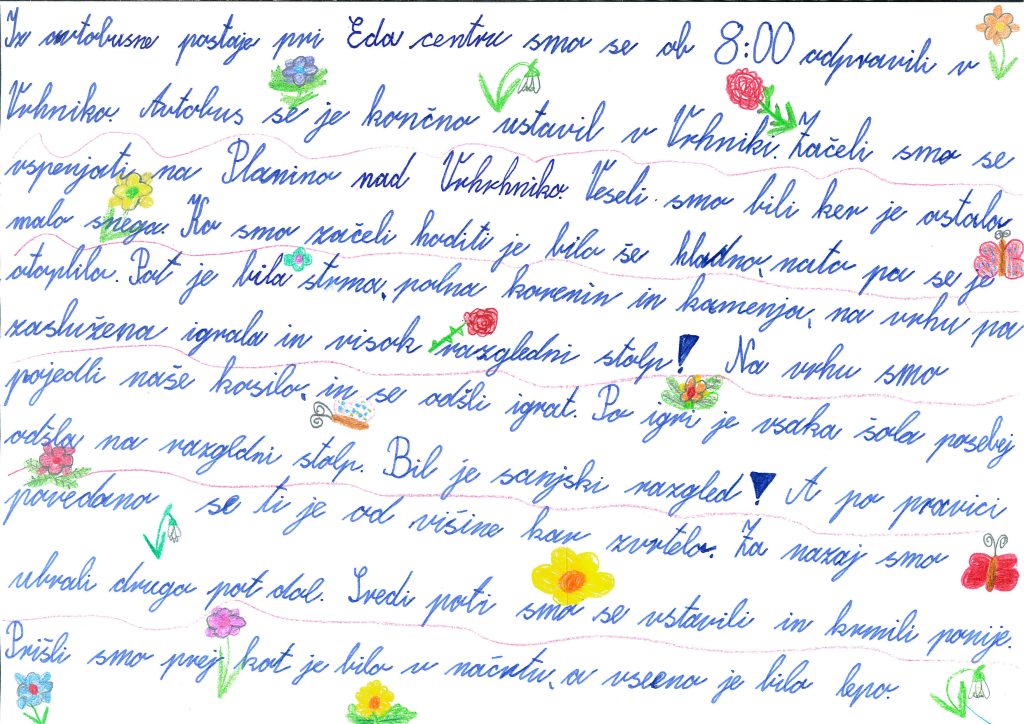 Iz avtobusne postaje pri Eda centru smo se ob 8:00 odpravili v
Vrhniko. Avtobus se je končno ustavil v Vrhniki. Začeli smo se
vspenjati na Planino nad Vrhrhniko. Veseli smo bili ker je ostalo
malo snega. Ko smo začeli hoditi je bilo še hladno, nato pa se je
otoplilo. Pot je bila strma, polna korenin in kamenja, na vrhu pa
zaslužena igrala in visok razgledni stolp! Na vrhu smo
pojedli naše kosilo, in se odšli igrat. Po igri je vsaka šola posebej
odšla na razgldni stolp. Bil je sanjski razgled! A po pravici
povedano se ti je od višine kar zvrtelo. Za nazaj smo
ubrali drugo pot dol. Sredi poti smo se vstavili in krmili ponije.
Prišli smo prej kot je bilo v načrtu, a vseeno je bilo lepo.